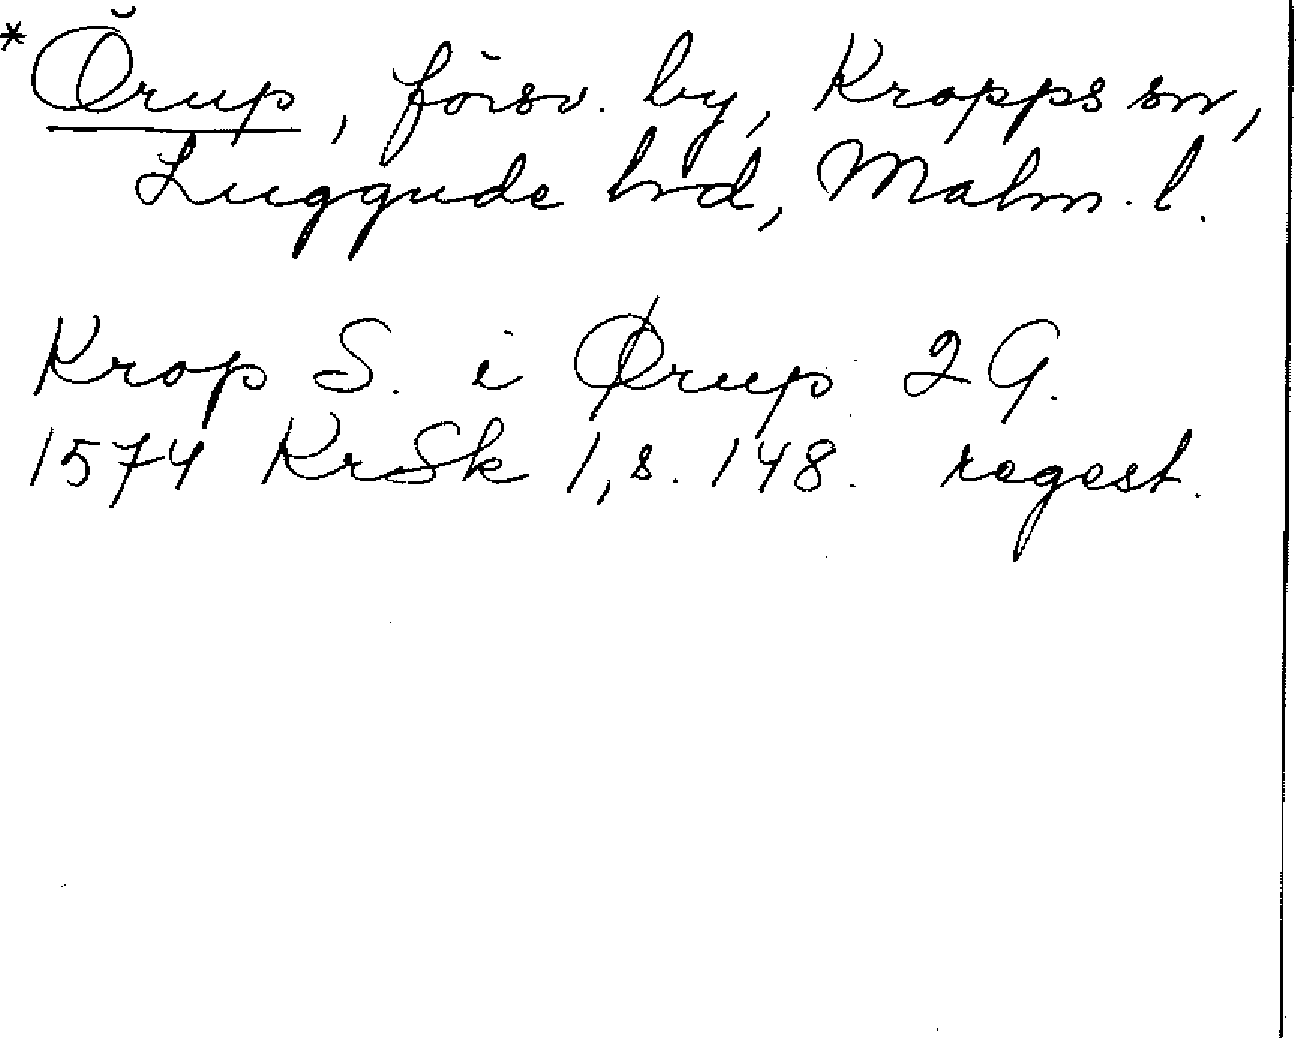 *Örup, försv. by, Kropps sn,
Luggude hrd, Malm. l.
Krop S. i Ørup 2 G.
1574 KrSk 1, s. 148. regest.